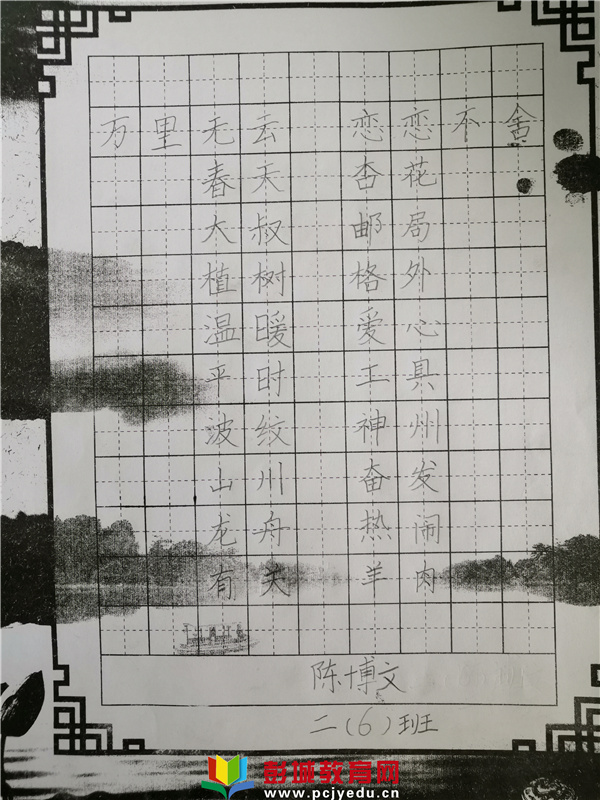 万里无云 恋恋不舍
春天 杏花
大叔 邮局
植树 格外
温暖 爱心
平时 工具
波纹 神州
山川 奋发
龙舟 热闹
有关 羊肉
陈博文
二(6)班
彭城教育网
www.pcjyedu.cn